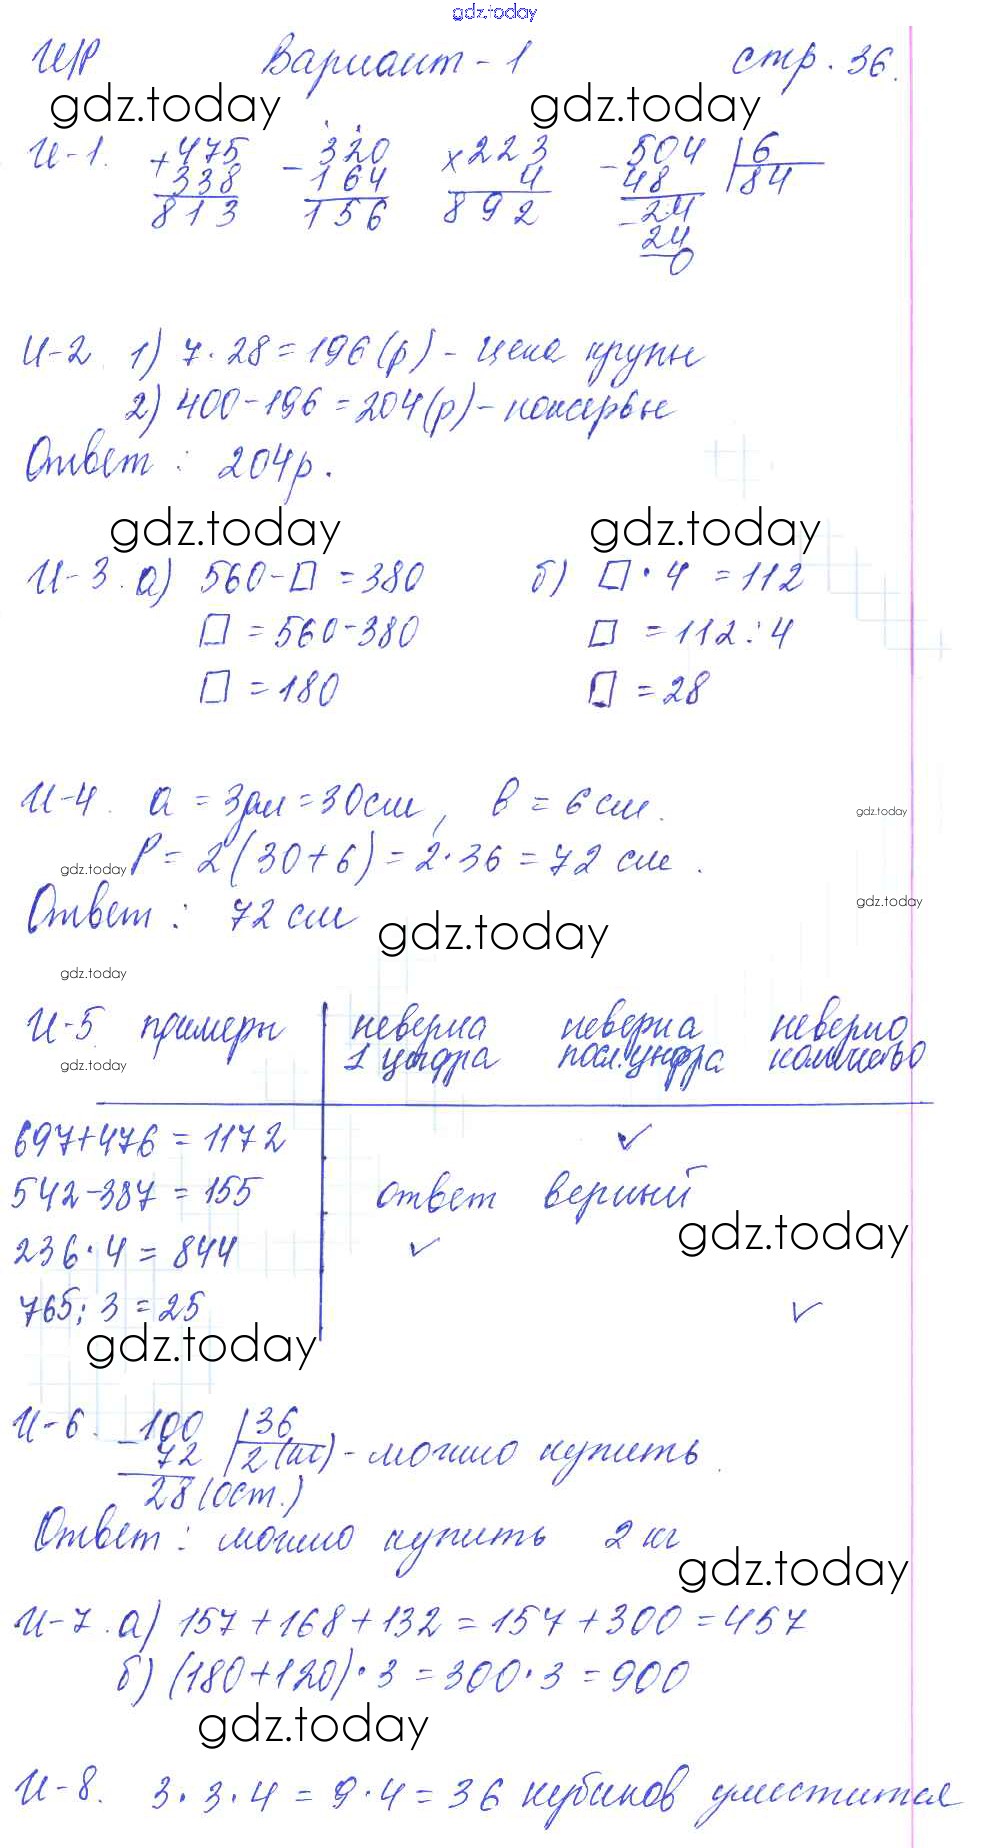 gdz.today
И/Р Вариант-1 стр. 36.
gdz.today gdz.today
И-1. +475 -320 ×223 -504 |6
338 164 4 48 84
813 156 892 -24
24
0
И-2. 1) 7·28=196(р)- цена крупы
2) 400-196=204(р)- консервы
Ответ: 204р.
gdz.today gdz.today
И-3. а) 560-□=380 б) □·4=112
□=560-380 □=112:4
□=180 □=28
И-4. а=3дм=30см, в=6см. gdz.today
gdz.today Р=2(30+6)=2·36=72 см.
gdz.today
Ответ: 72 см
gdz.today
gdz.today
И-5. примеры неверна неверна неверно
gdz.today 1 цифра посл. цифра количество
697+476=1172 ✓
542-387=155 ответ верный
gdz.today
236·4=844 ✓
765:3=25 ✓
gdz.today
И-6. -100 |36
72 2(ш)- можно купить.
28(ост.)
Ответ: можно купить 2 кг
gdz.today
И-7. а) 157+168+132=157+300=457
б) (180+120)·3=300·3=900
gdz.today
И-8. 3·3·4=9·4=36 кубиков уместится